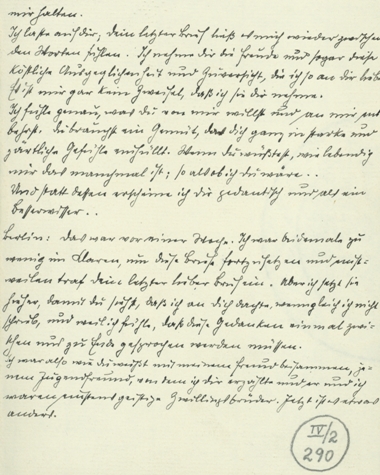 mir halten.
Ich laste auf dir, dein letzter Brief ließ es mich wieder zwischen
den Worten fühlen. Ich nehme dir die Freude und sogar diese
köstliche Ausgeglichenheit und Zuversicht, die ich so an dir liebe
Es ist mir gar kein Zweifel, daß ich sie dir nehme.
Ich fühle genau, was du von mir willst und an mir ent
behrst: du brauchst ein Gemüt, das dich ganz in starke und
zärtliche Gefühle einhüllt. Wenn du wüßtest, wie lebendig
mir das manchmal ist; so als ob ich du wäre..
Und statt dessen erscheine ich dir pedantisch und als ein
Besserwisser..
Berlin: das war vor einer Woche. Ich war beidemale zu
wenig im Klaren, um diese Briefe fortzusetzen und mitt-
weilen traf dein letzter lieber Brief ein. Aber ich setze sie
hieher, damit du siehst, daß ich an dich dachte, wenngleich ich nicht
schrieb, und weil ich fühle, daß diese Gedanken einmal zwi-
schen uns zu Ende gesprochen werden müssen.
Ich war also wie du weißt mit meinem Freund beisammen, je-
nem Jugendfreund, von dem ich dir erzählte und er und ich
waren einstens geistige Zwillingsbrüder. Jetzt ist es etwas
anders.
IV/2
290